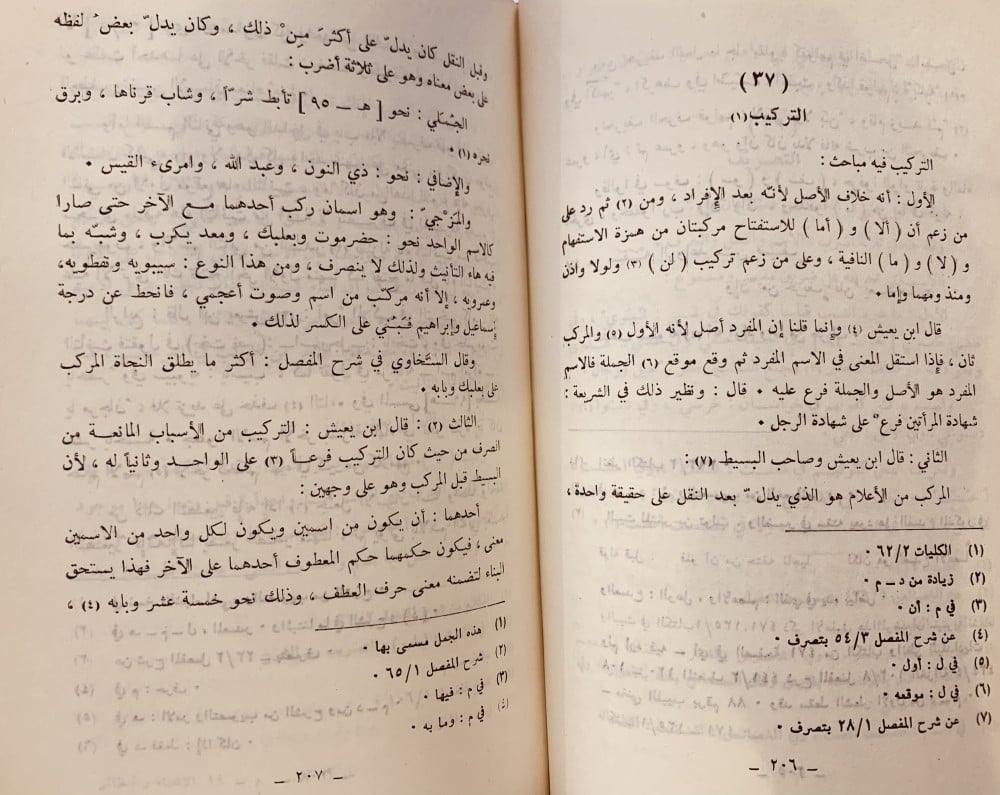 (٣٧)
التركيب (١)
التركيب فيه مباحث :
الأول : أنه خلاف الأصل لأنه بعد الإفراد ، ومن (٢) ثم رد على
من زعم أن ( ألا ) و ( أما ) للاستفتاح مركبتان من همزة الاستفهام
و ( لا ) و ( ما ) النافية ، وعلى من زعم تركيب ( لن ) (٣) ولولا واذن
ومنذ ومهما وإما ٠
قال ابن يعيش (٤) وإنما قلنا إن المفرد أصل لأنه الأول (٥) والمركب
ثان ، فإذا استقل المعنى في الاسم المفرد ثم وقع موقع (٦) الجملة فالاسم
المفرد هو الأصل والجملة فرع عليه ٠ قال : ونظير ذلك في الشريعة :
شهادة المرأتين فرعٌ على شهادة الرجل ٠
الثاني : قال ابن يعيش وصاحب البسيط (٧) :
المركب من الأعلام هو الذي يدلّ بعد النقل على حقيقة واحدة ،
(١) الكليات ٦٢/٢ ٠
(٢) زيادة من د ـ م ٠
(٣) في م : أن ٠
(٤) عن شرح المفصل ٥٤/٣ بتصرف ٠
(٥) في ل : أول ٠
(٦) في ل : موقعه ٠
(٧) عن شرح المفصل ٢٨/١ بتصرف ٠
ـ ٢٠٦ ـ
وقبل النقل كان يدلّ على أكثرَ مِنْ ذلك ، وكان يدلّ بعضُ لفظه
على بعض معناه وهو على ثلاثة أضرب :
الجُملي : نحو [ هـ ـ ٩٥ ] تأبط شرّاً ، وشاب قرناها ، وبرق
نحره (١) ٠
والإضافي : نحو : ذي النون ، وعبد الله ، وامرىء القيس ٠
والمَزْجيّ : وهو اسمان ركب أحدهما مع الآخر حتى صارا
كالاسم الواحد نحو : حضرموت وبعلبك ، ومعد يكرب ، وشبّه بما
فيه هاء التأنيث ولذلك لا ينصرف ، ومن هذا النوع : سيبويه ونفطويه،
وعمرويه ، إلا أنه مركّب من اسم وصوت أعجمي ، فانحط عن درجة
إسماعيل وإبراهيم فبُني على الكسر لذلك ٠
وقال السّخاوي في شرح المفصل : أكثر ما يطلق النحاة المركب
على بعلبك وبابه ٠
الثالث (٢) : قال ابن يعيش : التركيب من الأسباب المانعة من
الصرف من حيث كان التركيب فرعاً (٣) على الواحد وثانياً له ، لأن
البسط قبل المركب وهو على وجهين :
أحدهما : أن يكون من اسمين ويكون لكل واحد من الاسمين
معنى ، فيكون حكمهما حكم المعطوف أحدهما على الآخر فهذا يستحق
البناء لتضمنه معنى حرف العطف ، وذلك نحو خمسة عشر وبابه (٤) ،
(١) هذه الجمل مسمى بها ٠
(٢) شرح المفصل ٦٥/١ ٠
(٣) في م : فيها ٠
(٤) في م : وما به ٠
ـ ٢٠٧ ـ